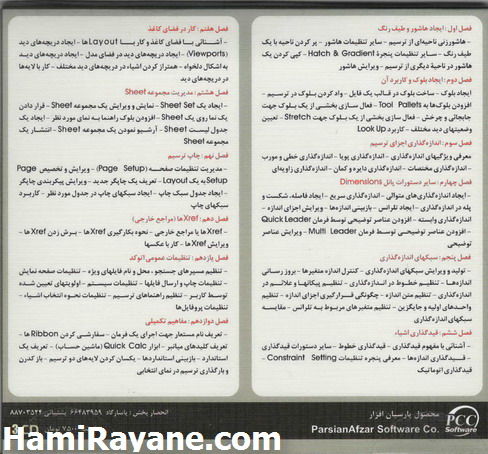 فصل اول: ایجاد هاشور و طیف رنگ
- هاشورزنی ناحیه‌ای از ترسیم - سایر تنظیمات هاشور - پر کردن ناحیه با یک
طیف رنگ - سایر تنظیمات پنجره Hatch & Gradient - کپی کردن یک
هاشور در ناحیه دیگری از ترسیم - ویرایش هاشور
فصل دوم: ایجاد بلوک و کاربرد آن
- ایجاد بلوک - ساخت بلوک در قالب یک فایل - وارد کردن بلوک در ترسیم -
افزودن بلوک‌ها به Tool Pallets - فعال سازی بخشی از یک بلوک جهت
جابجائی و چرخش - فعال سازی بخشی از یک بلوک جهت Stretch - تعیین
وضعیتهای دید مختلف - کاربرد Look Up
فصل سوم: اندازه‌گذاری اجزای ترسیم
- معرفی ویژگیهای اندازه‌گذاری - اندازه‌گذاری پویا - اندازه‌گذاری خطی و مورب
- اندازه‌گذاری مختصات - اندازه‌گذاری دایره و کمان - اندازه‌گذاری زاویه‌ای
فصل چهارم: سایر دستورات پانل Dimensions
- ایجاد اندازه‌گذاری‌های متوالی - اندازه‌گذاری سریع - ایجاد فاصله، شکست و
پله در اندازه‌گذاری - ایجاد تلرانس - بازبینی اندازه‌ها - ویرایش اجزای اندازه -
اندازه‌گذاری وابسته - افزودن عناصر توضیحی توسط فرمان Quick Leader
- افزودن عناصر توضیحی توسط فرمان Multi Leader - ویرایش عناصر
توضیحی
فصل پنجم: سبکهای اندازه‌گذاری
- تولید و ویرایش سبکهای اندازه‌گذاری - کنترل اندازه متغیرها - بروز رسانی
اندازه‌ها - تنظیم خطوط در اندازه‌گذاری - تنظیم پیکانها و علائم در
اندازه‌گذاری - تنظیم متن اندازه - چگونگی قرارگیری اجزای اندازه - تنظیم
واحدهای اولیه و جایگزین - تنظیم متغیرهای مربوط به تلرانس - مقایسه
سبکهای اندازه‌گذاری
فصل ششم: قیدگذاری اشیاء
- آشنایی با مفهوم قیدگذاری - قیدگذاری خطوط - سایر دستورات قیدگذاری
- قیدگذاری اندازه‌ها - معرفی پنجره تنظیمات Constraint Setting -
قیدگذاری اتوماتیک
فصل هفتم: کار در فضای کاغذ
- آشنائی با فضای کاغذ و کار با Layout ها - ایجاد دریچه‌های دید
(Viewports) - ایجاد دریچه‌های دید در فضای مدل - ایجاد دریچه‌های دید
به اشکال دلخواه - همتراز کردن اشیاء در دریچه‌های دید مختلف - کار با لایه‌ها
در دریچه‌های دید
فصل هشتم: مدیریت مجموعه Sheet
- ایجاد یک Sheet Set - نمایش و ویرایش یک مجموعه Sheet - قرار دادن
یک نما روی یک Sheet - افزودن بلوک راهنما به نمای مورد نظر - ایجاد یک
جدول لیست Sheet - آرشیو نمودن یک مجموعه Sheet - انتشار یک
مجموعه Sheet
فصل نهم: چاپ ترسیم
- مدیریت تنظیمات صفحه (Page Setup) - ویرایش و تخصیص Page
Setup به یک Layout - تعریف یک چاپگر جدید - ویرایش پیکربندی چاپگر
- ایجاد جدول سبک چاپ - ایجاد سبکهای چاپ در جدول مورد نظر - کاربرد
سبکهای چاپ
فصل دهم: Xref ها (مراجع خارجی)
- Xref ها یا مراجع خارجی - نحوه بکارگیری Xref ها - برش زدن Xref ها -
ویرایش Xref ها - کار با عکسها
فصل یازدهم: تنظیمات عمومی اتوکد
- تنظیم مسیرهای جستجو، محل و نام فایلهای ویژه - تنظیمات صفحه نمایش
- تنظیمات چاپ و ارسال فایلها - تنظیمات سیستم - اولویتهای تعیین شده
توسط کاربر - تنظیم راهنماهای ترسیم - تنظیمات نحوه انتخاب اشیاء -
تنظیمات پروفایل‌ها
فصل دوازدهم: مفاهیم تکمیلی
- تعریف نام مستعار جهت اجرای یک فرمان - سفارشی کردن Ribbon ها -
تعریف کلیدهای میانبر - ابزار Quick Calc (ماشین حساب) - تعریف یک
استاندارد - بازبینی استانداردها - یکسان کردن لایه‌های دو ترسیم - باز کردن
و بارگذاری ترسیم در نمای انتخابی
محصول پارسیان افزار
ParsianAfzar Software Co.
PCC
Software
انحصار پخش: پاسارگاد ۶۶۴۸۳۹۵۹ پشتیبانی: ۸۸۷۰۳۵۲۴
3 CD
تومان
HamiRayane.com